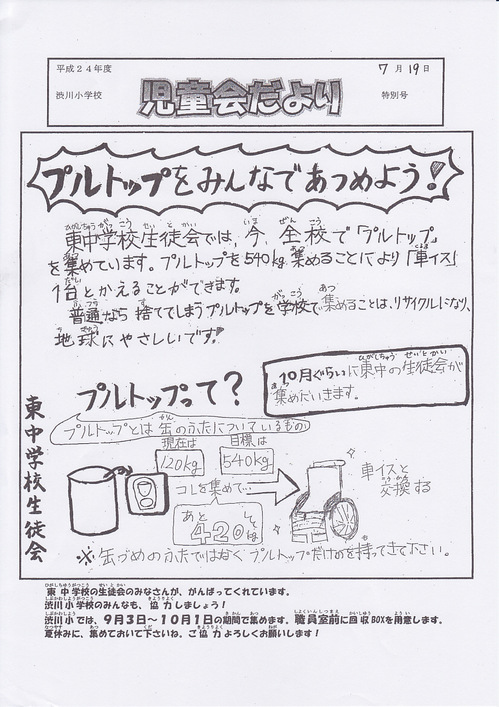 平成24年度
7月19日
渋川小学校
児童会だより
特別号
プルトップをみんなであつめよう!
東中学校生徒会では、今、全校で「プルトップ」
を集めています。プルトップを540kg集めることにより「車イス」
1台とかえることができます。
普通なら捨ててしまうプルトップを学校で集めることは、リサイクルになり、
地球にやさしいです。
10月ぐらいに東中の生徒会が
集めにいきます。
プルトップって?
プルトップとは缶のふたについているもの
現在は
120kg
目標は
540kg
コレを集めて…
あと
420kg
車イスと
交換する
※缶づめのふたではなくプルトップだけを持ってきて下さい。
東中学校生徒会
東中学校の生徒会のみなさんが、がんばってくれています。
渋川小学校のみんなも、協力しましょう!
渋川小では、9月3日～10月1日の期間で集めます。職員室前に回収BOXを用意します。
夏休みに、集めておいて下さいね。ご協力よろしくお願いします!